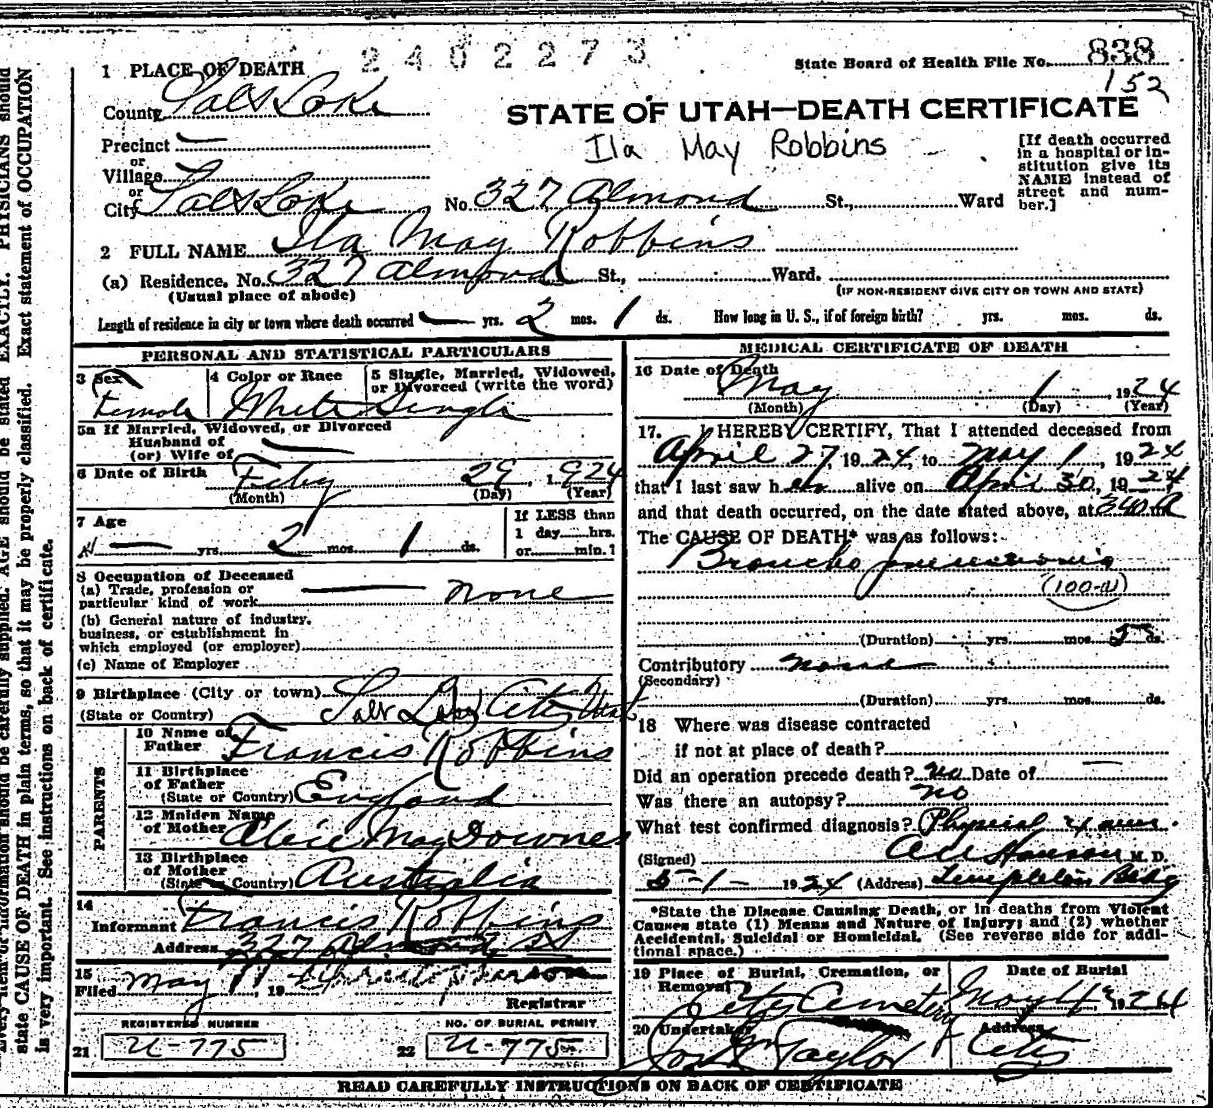 2402273
State Board of Health File No. 838
152
1 PLACE OF DEATH
County Salt Lake
STATE OF UTAH—DEATH CERTIFICATE
Ila May Robbins
Precinct —
or
Village
or
City Salt Lake No. 327 Almond St., Ward
[If death occurred
in a hospital or in-
stitution give its
NAME instead of
street and num-
ber.]
2 FULL NAME Ila May Robbins
(a) Residence. No. 327 Almond St., Ward.
(Usual place of abode)
(IF NON-RESIDENT GIVE CITY OR TOWN AND STATE)
Length of residence in city or town where death occurred — yrs. 2 mos. 1 ds. How long in U. S., if of foreign birth? yrs. mos. ds.
PERSONAL AND STATISTICAL PARTICULARS
3 Sex
Female
4 Color or Race
White
5 Single, Married, Widowed,
or Divorced (write the word)
Single
5a If Married, Widowed, or Divorced
Husband of
(or) Wife of —
6 Date of Birth Feby 29, 1924
(Month) (Day) (Year)
7 Age
— yrs. 2 mos. 1 ds.
If LESS than
1 day hrs.
or min.?
8 Occupation of Deceased
(a) Trade, profession or
particular kind of work — none
(b) General nature of industry,
business, or establishment in
which employed (or employer)
(c) Name of Employer
9 Birthplace (City or town) Salt Lake City Utah
(State or Country)
PARENTS
10 Name of
Father Francis Robbins
11 Birthplace
of Father
(State or Country) England
12 Maiden Name
of Mother Alice May Downes
13 Birthplace
of Mother
(State or Country) Australia
14
Informant Francis Robbins
Address 327 Almond St
15
Filed May 1, 19
Registrar
REGISTERED NUMBER
21 U-775
NO. OF BURIAL PERMIT
22 U-775
MEDICAL CERTIFICATE OF DEATH
16 Date of Death
May 1, 1924
(Month) (Day) (Year)
17. I HEREBY CERTIFY, That I attended deceased from
April 27, 1924, to May 1, 1924
that I last saw her alive on April 30, 1924
and that death occurred, on the date stated above, at 340 A
The CAUSE OF DEATH* was as follows:
Broncho pneumonia
(100-a)
(Duration) yrs. mos. 5 ds.
Contributory none
(Secondary)
(Duration) yrs. mos. ds.
18 Where was disease contracted
if not at place of death?
Did an operation precede death? no Date of —
Was there an autopsy? no
What test confirmed diagnosis? Physical exam.
(Signed) Hanson M. D.
5-1- 1924 (Address) Templeton Bldg
*State the Disease Causing Death, or in deaths from Violent
Causes state (1) Means and Nature of Injury; and (2) whether
Accidental, Suicidal or Homicidal. (See reverse side for addi-
tional space.)
19 Place of Burial, Cremation, or
Removal
City Cemetery
Date of Burial
May 4, 1924
20 Undertaker
Taylor
Address
City
READ CAREFULLY INSTRUCTIONS ON BACK OF CERTIFICATE
should be carefully supplied. AGE should be stated EXACTLY. PHYSICIANS should
state CAUSE OF DEATH in plain terms, so that it may be properly classified. Exact statement of OCCUPATION
is very important. See instructions on back of certificate.